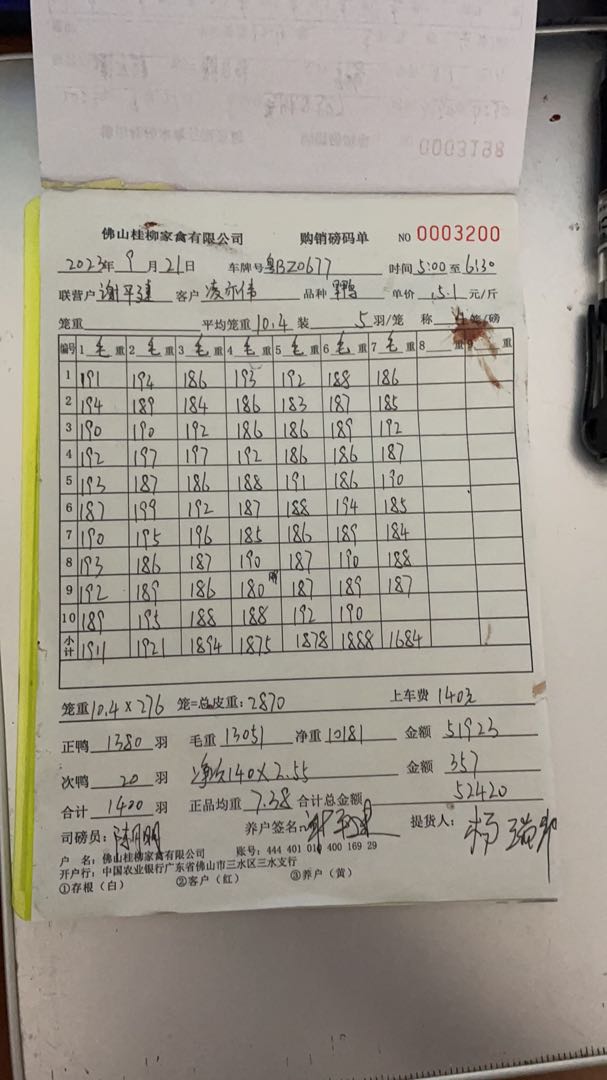 0003198
佛山桂柳家禽有限公司 购销磅码单 NO 0003200
2023年 9 月 21日 车牌号 粤BZ0677 时间 5:00 至 6:30
联营户 谢平建 客户 凌亦伟 品种 单价 5.1 元/斤
笼重 平均笼重 10.4 装 5 羽/笼 称 4 笼/磅
编号 1 毛 重 2 毛 重 3 毛 重 4 毛 重 5 毛 重 6 毛 重 7 毛 重 8 重 9 重
1 191 194 186 193 192 188 186
2 194 189 184 186 183 187 185
3 190 190 192 186 186 189 192
4 192 197 197 192 186 186 187
5 193 187 186 188 191 186 190
6 187 199 192 187 188 194 185
7 190 195 196 185 186 189 184
8 193 186 187 190 187 190 188
9 192 189 186 180 187 189 187
10 189 195 188 188 192 190
小计 1911 1921 1894 1875 1878 1888 1684
笼重 10.4 × 276 笼=总皮重: 2870 上车费 140元
正鸭 1380 羽 毛重 13051 净重 10181 金额 51923
次鸭 20 羽 净欠140×2.55 金额 357
合计 1400 羽 正品均重 7.38 合计总金额 52420
司磅员: 陈明 养户签名: 提货人: 杨瑞
户 名: 佛山桂柳家禽有限公司 账号: 444 401 010 400 169 29
开户行: 中国农业银行广东省佛山市三水区三水支行
①存根(白) ②客户(红) ③养户(黄)